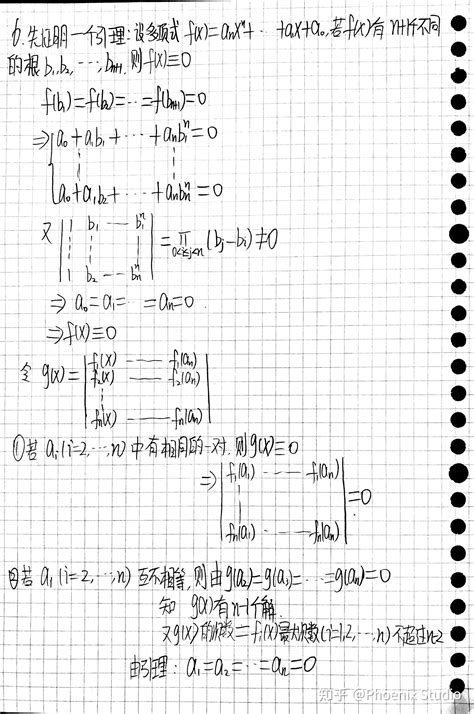 6.先证明一个引理:设多项式 f(x)=anxⁿ+⋯+a₁x+a₀,若f(x)有n+1个不同
的根 b₁,b₂,⋯,bn+1,则f(x)≡0
f(b₁)=f(b₂)=⋯=f(bn+1)=0
⇒ a₀+a₁b₁+⋯+anb₁ⁿ=0
a₀+a₁b₂+⋯+anbnⁿ=0
又 | 1 b₁ — b₁ⁿ
1 b₂ — bnⁿ | = ∏0<i<j<n (bj-bi)≠0
⇒ a₀=a₁=⋯=an=0.
⇒f(x)≡0
令 g(x)= | f₁(x) — f₁(an)
f₂(x) — f₂(an)
fn(x) — fn(an) |
①若ai(i=2,⋯,n)中有相同的一对,则g(x)≡0
⇒ | f₁(a₁) — f₁(an)
fn(a₁) — fn(an) | =0
②若 ai(i=2,⋯,n)互不相等,则由g(a₂)=g(a₃)=⋯=g(an)=0
知 g(x)有n-1个解.
又g(x)的次数=fi(x)最大次数(i=1,2,⋯,n)不超过n-2
由引理: a₁=a₂=⋯=an=0
知乎 @Phoenix Studio